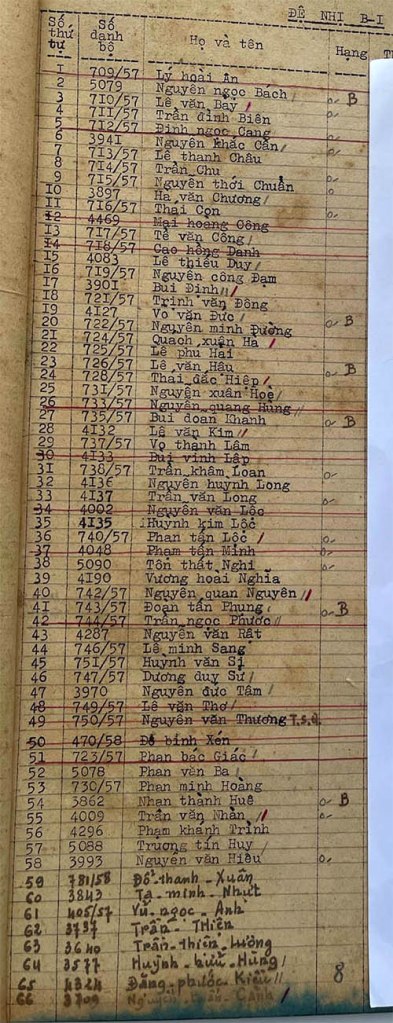 ĐỆ NHỊ B-I
Số thứ tự Số danh bộ Họ và tên Hạng
I 709/57 Lý hoài An
2 5079 Nguyễn ngọc Bách B
3 710/57 Lê văn Bảy
4 7II/57 Trần đình Biên
5 712/57 Đinh ngọc Cang
6 394I Nguyễn khắc Cần
7 713/57 Lê thanh Châu
8 714/57 Trần Chu
9 715/57 Nguyễn thới Chuẩn
I0 3897 Hà văn Chương
II 716/57 Thái Con
I2 4469 Mai hoàng Công
I3 717/57 Tề văn Công
I4 718/57 Cao hồng Danh
I5 4083 Lê thiếu Duy
I6 719/57 Nguyễn công Đạm
I7 390I Bùi Định
I8 721/57 Trịnh văn Đông
I9 4I27 Võ văn Đức
20 722/57 Nguyễn minh Đường B
2I 724/57 Quách xuân Hà
22 725/57 Lê phú Hải
23 726/57 Lê văn Hậu
24 728/57 Thái đắc Hiệp B
25 731/57 Nguyễn xuân Hoè
26 733/57 Nguyễn quang Hùng
27 735/57 Bùi doãn Khanh B
28 4I32 Lê văn Kim
29 737/57 Võ thành Lâm
30 4I33 Bùi vinh Lập
3I 738/57 Trần khâm Loan
32 4I36 Nguyễn huỳnh Long
33 4I37 Trần văn Long
34 4002 Nguyễn văn Lộc
35 4I35 Huỳnh kim Lộc
36 740/57 Phan tấn Lộc
37 4048 Phạm tấn Minh
38 5090 Tôn thất Nghi
39 4I90 Vương hoài Nghĩa
40 742/57 Nguyễn quan Nguyên
4I 743/57 Đoạn tấn Phung B
42 744/57 Trần ngọc Phước
43 4287 Nguyễn văn Rất
44 746/57 Lê minh Sang
45 75I/57 Huỳnh văn Sỉ
46 747/57 Dương duy Sử
47 3970 Nguyễn đức Tâm
48 749/57 Lê văn Thơ
49 750/57 Nguyễn văn Thương T.s.q.
50 470/58 Đỗ bỉnh Xén
51 723/57 Phan bác Giác
52 5078 Phan văn Ba
53 730/57 Phan minh Hoàng
54 3862 Nhan thành Huê B
55 4009 Trần văn Nhàn
56 4296 Phạm khánh Trình
57 5088 Trương tín Huy
58 3993 Nguyễn văn Hiếu
59 781/58 Đỗ thanh Xuân
60 3843 Tạ minh Nhựt
61 405/57 Vũ ngọc Anh
62 3737 Trần Thiện
63 3640 Trần thiên Lương
64 3577 Huỳnh hữu Hùng
65 4324 Đặng phước Kiều
66 3709 Nguyễn Cảnh
8